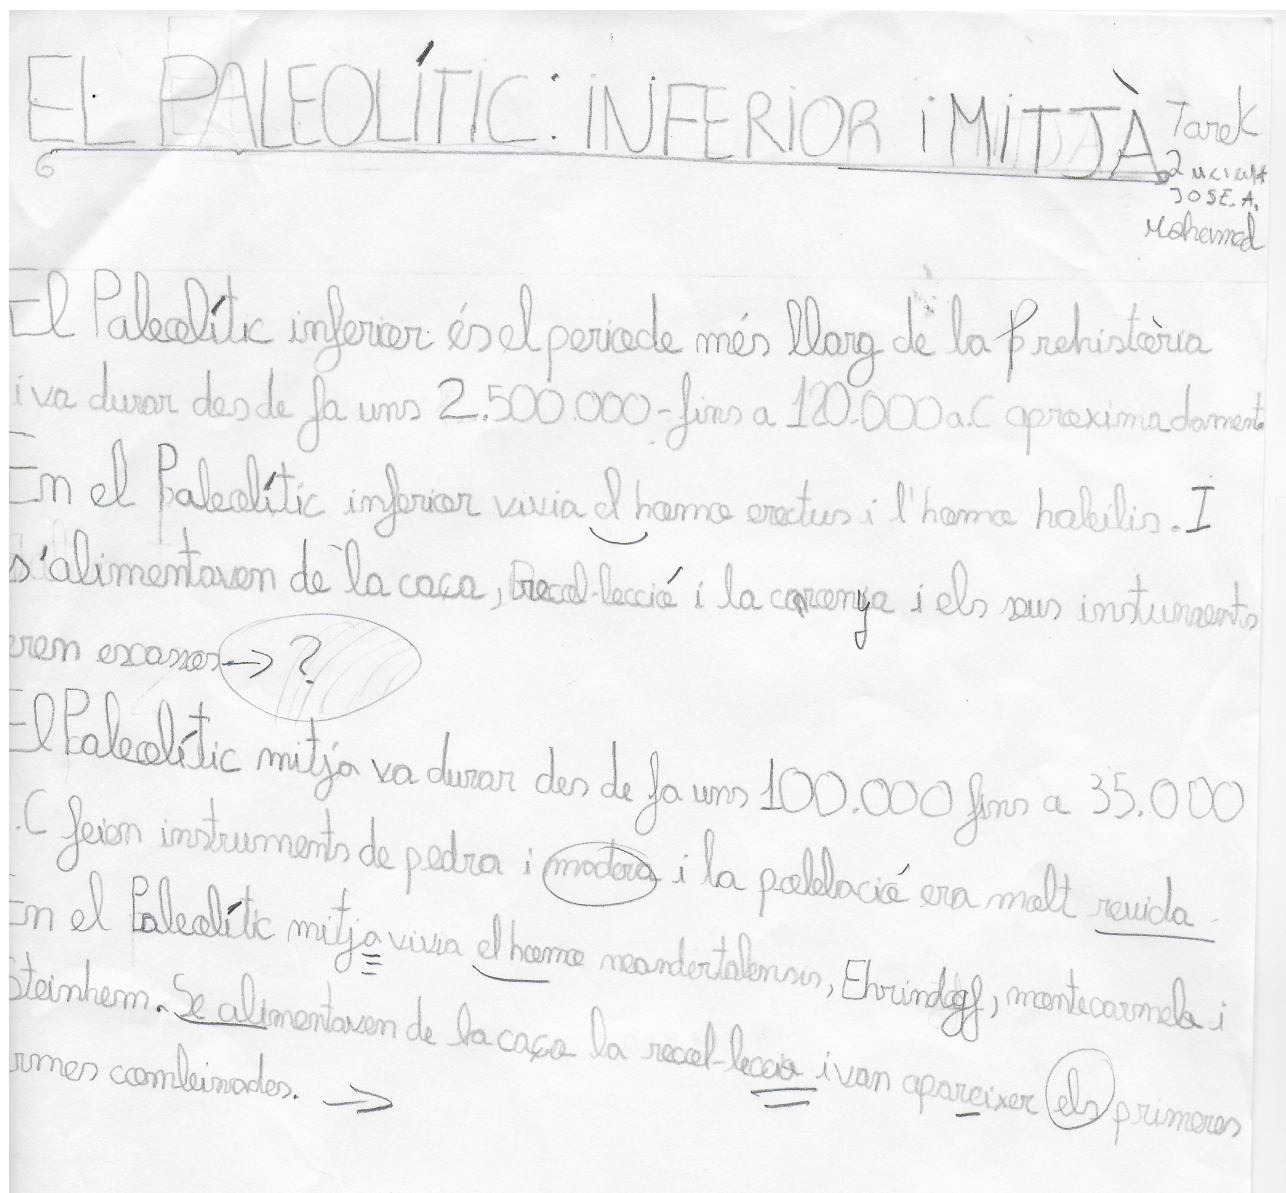 EL PALEOLÍTIC: INFERIOR i MITJÀ
Tarek
JOSE.A.
Mohamed
El Paleolític inferior és el periode més llarg de la Prehistòria
i va durar des de fa uns 2.500.000-fins a 120.000 a.C aproximadament.
En el Paleolític inferior vivia el homo erectus i l'homo habilis. I
s'alimentaven de la caça, recol·lecció i la caronya i els seus insturments
eren escasses → ?
El Paleolític mitja va durar des de fa uns 100.000 fins a 35.000
.C feien instruments de pedra i madera i la població era molt reuida.
En el Paleolític mitja vivia el homo neandertalensis, Ehrindogff, montecarmelo i
Steinhem. Se alimentaven de la caça la recol·leccio i van apareixer els primeres
rmes combinades. →